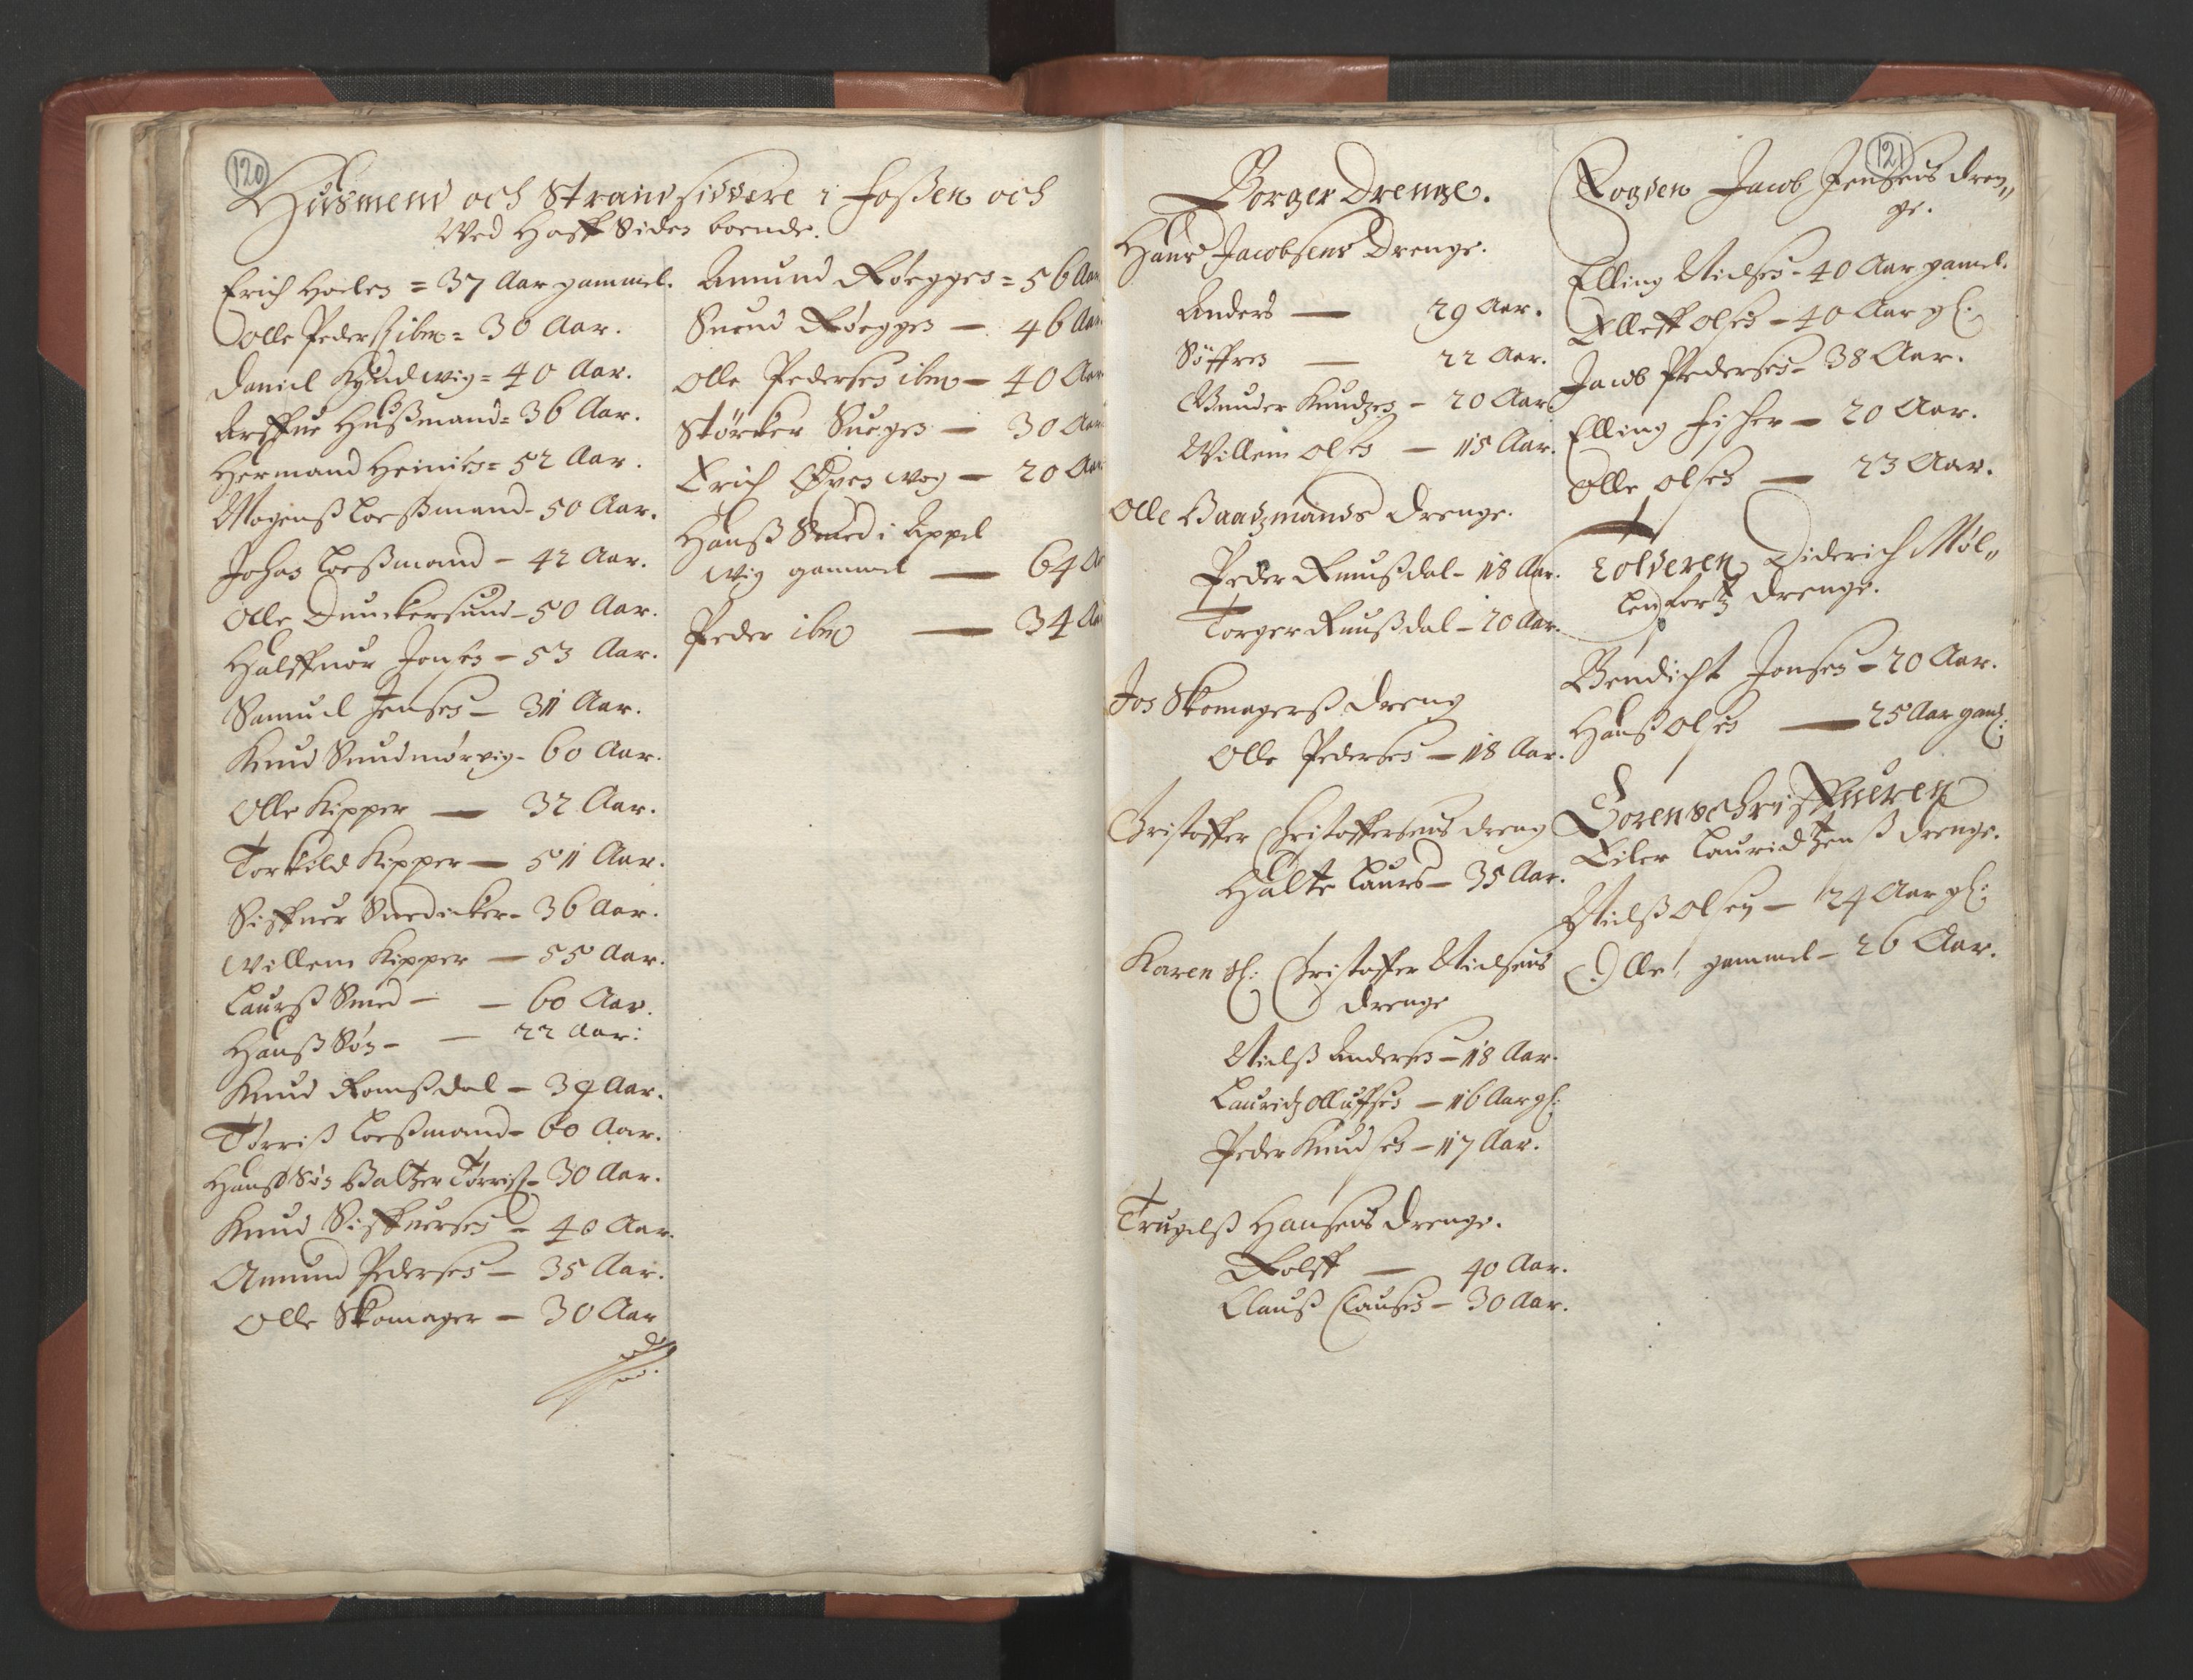 120
Husmend och Strandsiddere i Foßen och
Wed Haff Siden boende.
Erich Holen = 37 Aar gammel.
Olle Pederß ibm = 30 Aar.
Daniel Kyndwig = 40 Aar.
Arffue Hußmand = 36 Aar.
Hermand Heinichs = 52 Aar.
Mogenß Loeßmand - 50 Aar.
Johan Loeßmand - 42 Aar.
Olle Dunckersund - 50 Aar.
Halffuor Jonsen - 53 Aar.
Samuel Jensen - 31 Aar.
Knud Sundmørpig - 60 Aar.
Olle Kipper - 32 Aar.
Torkild Kipper - 51 Aar.
Siffuer Snedicker - 36 Aar.
Willem Kipper - 55 Aar.
Laurß Smed - - 60 Aar.
Hanß Søn - - 22 Aar:
Knud Romßdal - 39 Aar.
Tørriß Loeßmand - 60 Aar.
Hanß Søn Baltzer Tørriß - 30 Aar.
Knud Siffuersen - 40 Aar.
Amund Pedersen - 35 Aar.
Olle Skomager - 30 Aar
Amund Røegges = 56 Aar
Suend Røegges - 46 Aar
Olle Pedersen ibm - 40 Aar
Størker - 30 Aar
Erich Øreswog - 20 Aar
Hanß Smed i Appel
wig gammel - 64 A
Peder ibm - 34 Aa
Borger Drenge.
Hans Jacobsens Drenge.
Anders - 29 Aar.
Söffren - 22 Aar.
Gunder Knudzen - 20 Aar.
Willem Olsen - 15 Aar.
Olle Baadzmands Drenge.
Peder Rmußdal - 18 Aar.
Torger Rmußdal - 20 Aar.
Jon Skomagerß Dreng
Olle Pedersen - 18 Aar.
Christoffer Christoffersens dreng
Halte Laurs - 35 Aar.
Karen Sl: Christoffer Nielsens
Drenge
Nielß Andersen - 18 Aar.
Lauridz Olluffsen - 16 Aar gl:
Peder Knudsen - 17 Aar.
Trugelß Hansens Drenge.
Rolff - 40 Aar.
Clauß Clausen - 30 Aar.
121
Fogden Jacob Jensens Dren„
ge.
Elling Nielsen - 40 Aar gamel.
Elleff Olsen - 40 Aar gl:
Jacob Pedersen - 38 Aar.
Elling Fisher - 20 Aar.
Olle Olsen - 23 Aar.
Tolderen Diderich Møl„
lenfortz Drenge.
Bendicht Jonsen - 20 Aar.
Hanß Olsen - 25 Aar gaml:
Sorenschriffueren
Eiler Lauridtzenß Drenge.
Nielß Olsen - 24 Aar gl:
Olle, gammel - 26 Aar.